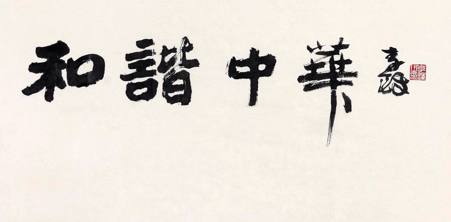 和諧中華